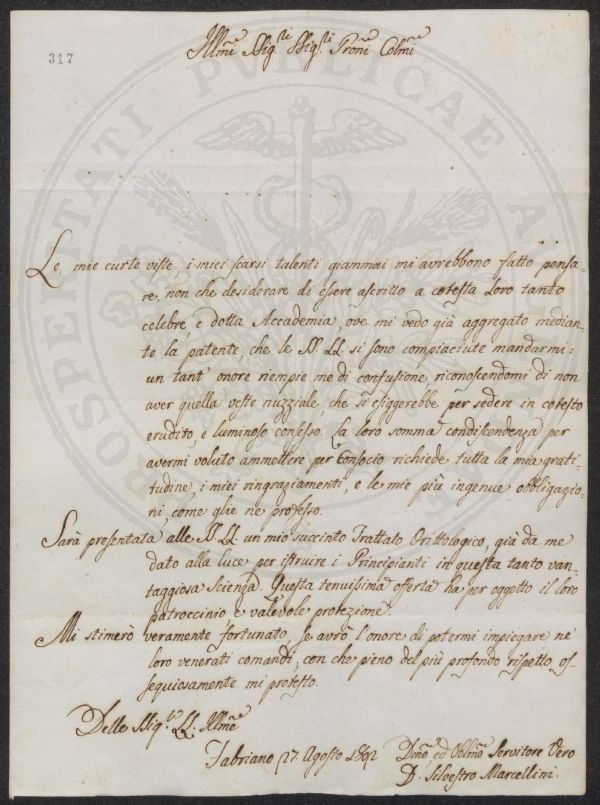 317
Illmi Sigti Sigti Proni Colmi
Le mie curte viste, i miei scarsi talenti giammai mi avrebbono fatto pensa-
re, non che desiderare di essere ascritto a cotesta Loro tanto
celebre, e dotta Accademia, ove mi vedo già aggregato median-
te la patente, che le SS. LL. si sono compiaciute mandarmi:
un tant' onore riempie me di confusione, riconoscendomi di non
aver quella veste nuzziale, che si esiggerebbe per sedere in cotesto
erudito, e luminoso consesso. La loro somma condiscendenza per
avermi voluto ammettere per Consocio richiede tutta la mia grati-
tudine, i miei ringraziamenti, e le mie più ingenue obbligazio-
ni, come glie ne professo.
Sarà presentata alle SS. LL. un mio succinto Trattato Orittologico, già da me
dato alla luce per istruire i Principianti in questa tanto van-
taggiosa Scienza. Questa tenuissima offerta ha per oggetto il loro
patroccinio e valevole protezione.
Mi stimerò veramente fortunato, se avrò l'onore di potermi impiegare ne'
loro venerati comandi, con che pieno del più profondo rispetto os-
sequiosamente mi protesto.
Delle SSigie LL. Illme
Fabriano 27 Agosto 1802 Dmo, ed Obblmo Servitore Vero
D. Silvestro Marcellini.
PROSPERITATI PUBLICAE AU